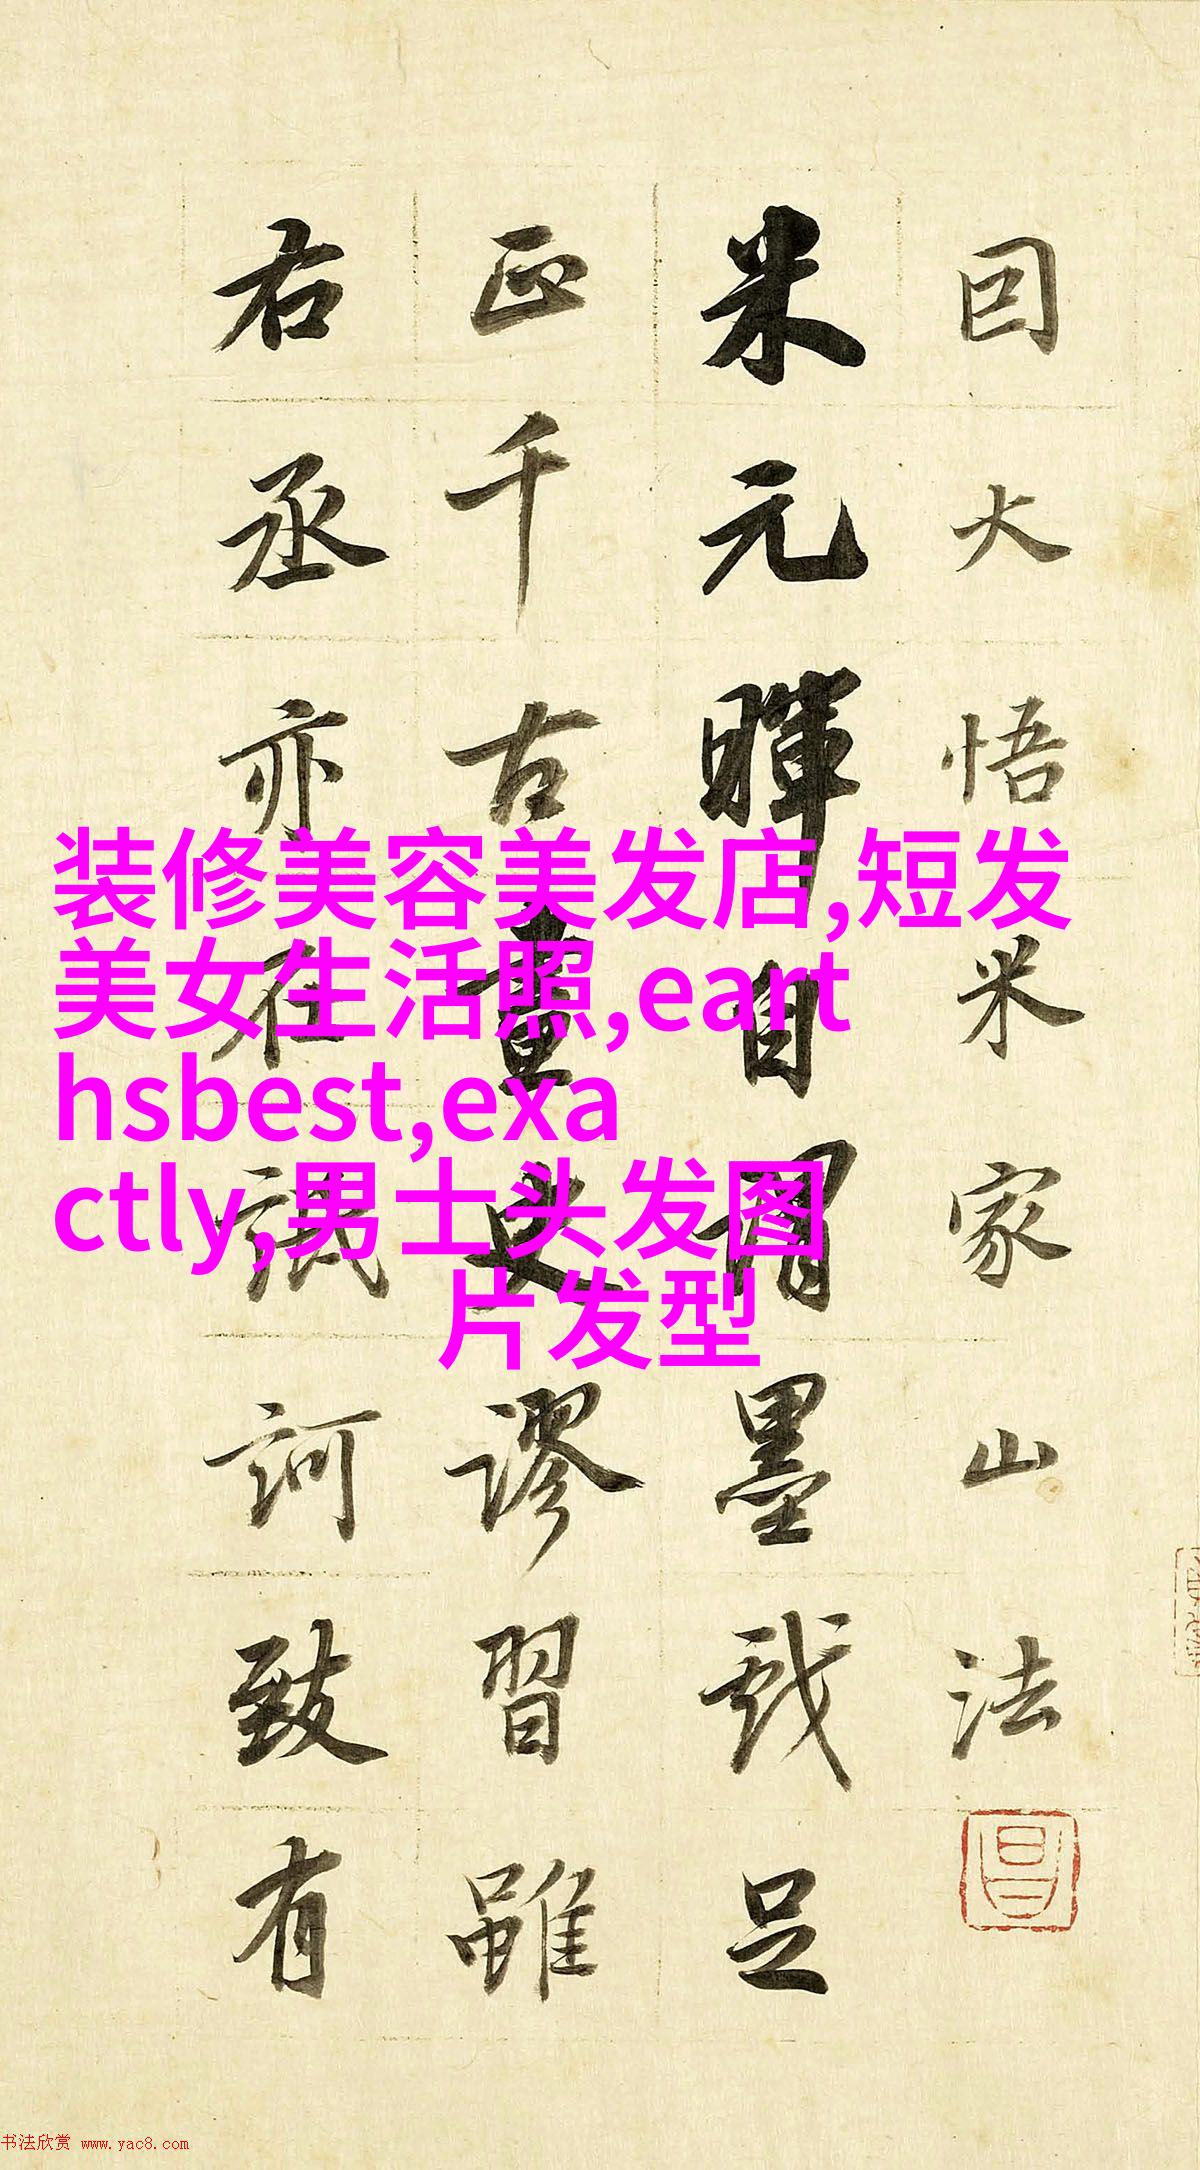 因大悟米家山法
米元暉自謂墨戲足
正千古畫史謬習雖
右丞亦在詆訶致有
昌
装修美容美发店,短发
美女生活照,eart
hsbest,exa
ctly,男士头发图
片发型
书法欣赏 www.yac8.com